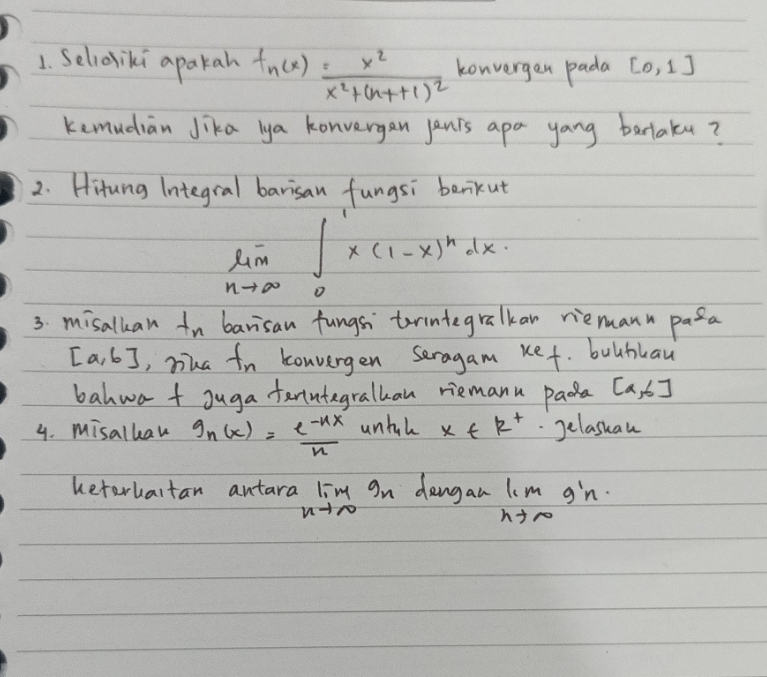 1. Selidiki apakah fn(x) = x² / x²+(n++1)² konvergen pada [0,1]
Kemudian Jika iya konvergen jenis apa yang berlaku?
2. Hitung Integral barisan fungsi berikut
lim n→∞ ∫₀¹ x(1-x)ⁿ dx.
3. misalkan fn barisan fungsi terintegralkan riemann pada
[a,b], jika fn konvergen seragam ke f. buktikan
bahwa f juga terintegralkan riemann pada [a,b]
4. misalkan gn(x) = e^(-nx) / n untuk x ∈ R⁺. jelaskan
keterkaitan antara lim n→∞ gn dengan lim n→∞ g'n.